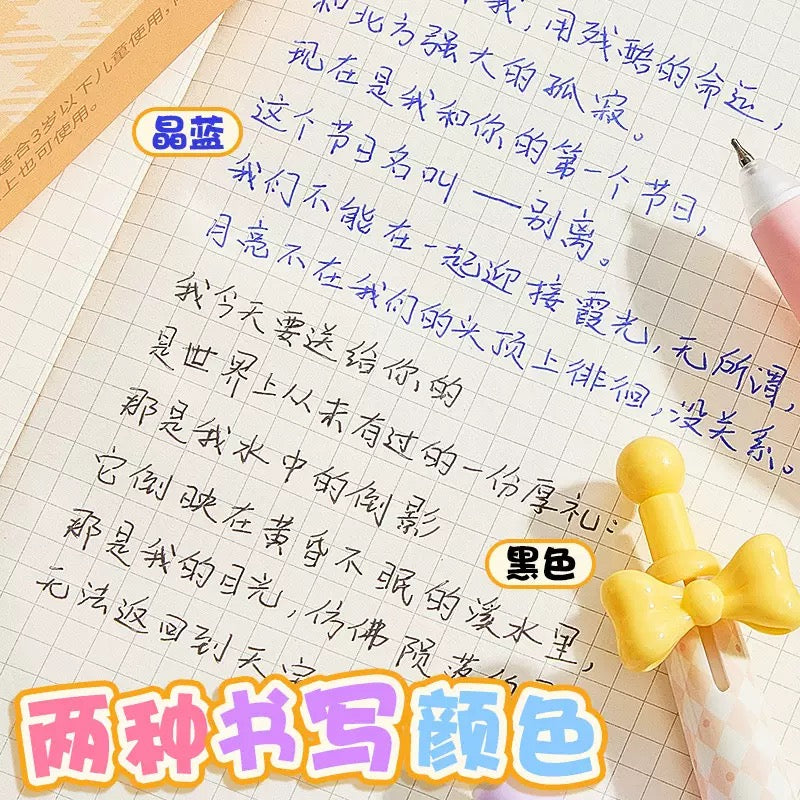 我,用残酷的命运,
和北方强大的孤寂。
现在是我和你的第一个节目,
这个节目名叫——别离。
我们不能在一起迎接霞光,无所谓,
月亮不在我们的头顶上徘徊,没关系。
晶蓝
适合3岁以下儿童使用,
上也可使用。
我今天要送给你的
是世界上从未有过的一份厚礼:
那是我水中的倒影
它倒映在黄昏不眠的溪水里,
那是我的目光,仿佛陨落的
无法返回到天
黑色
两种书写颜色